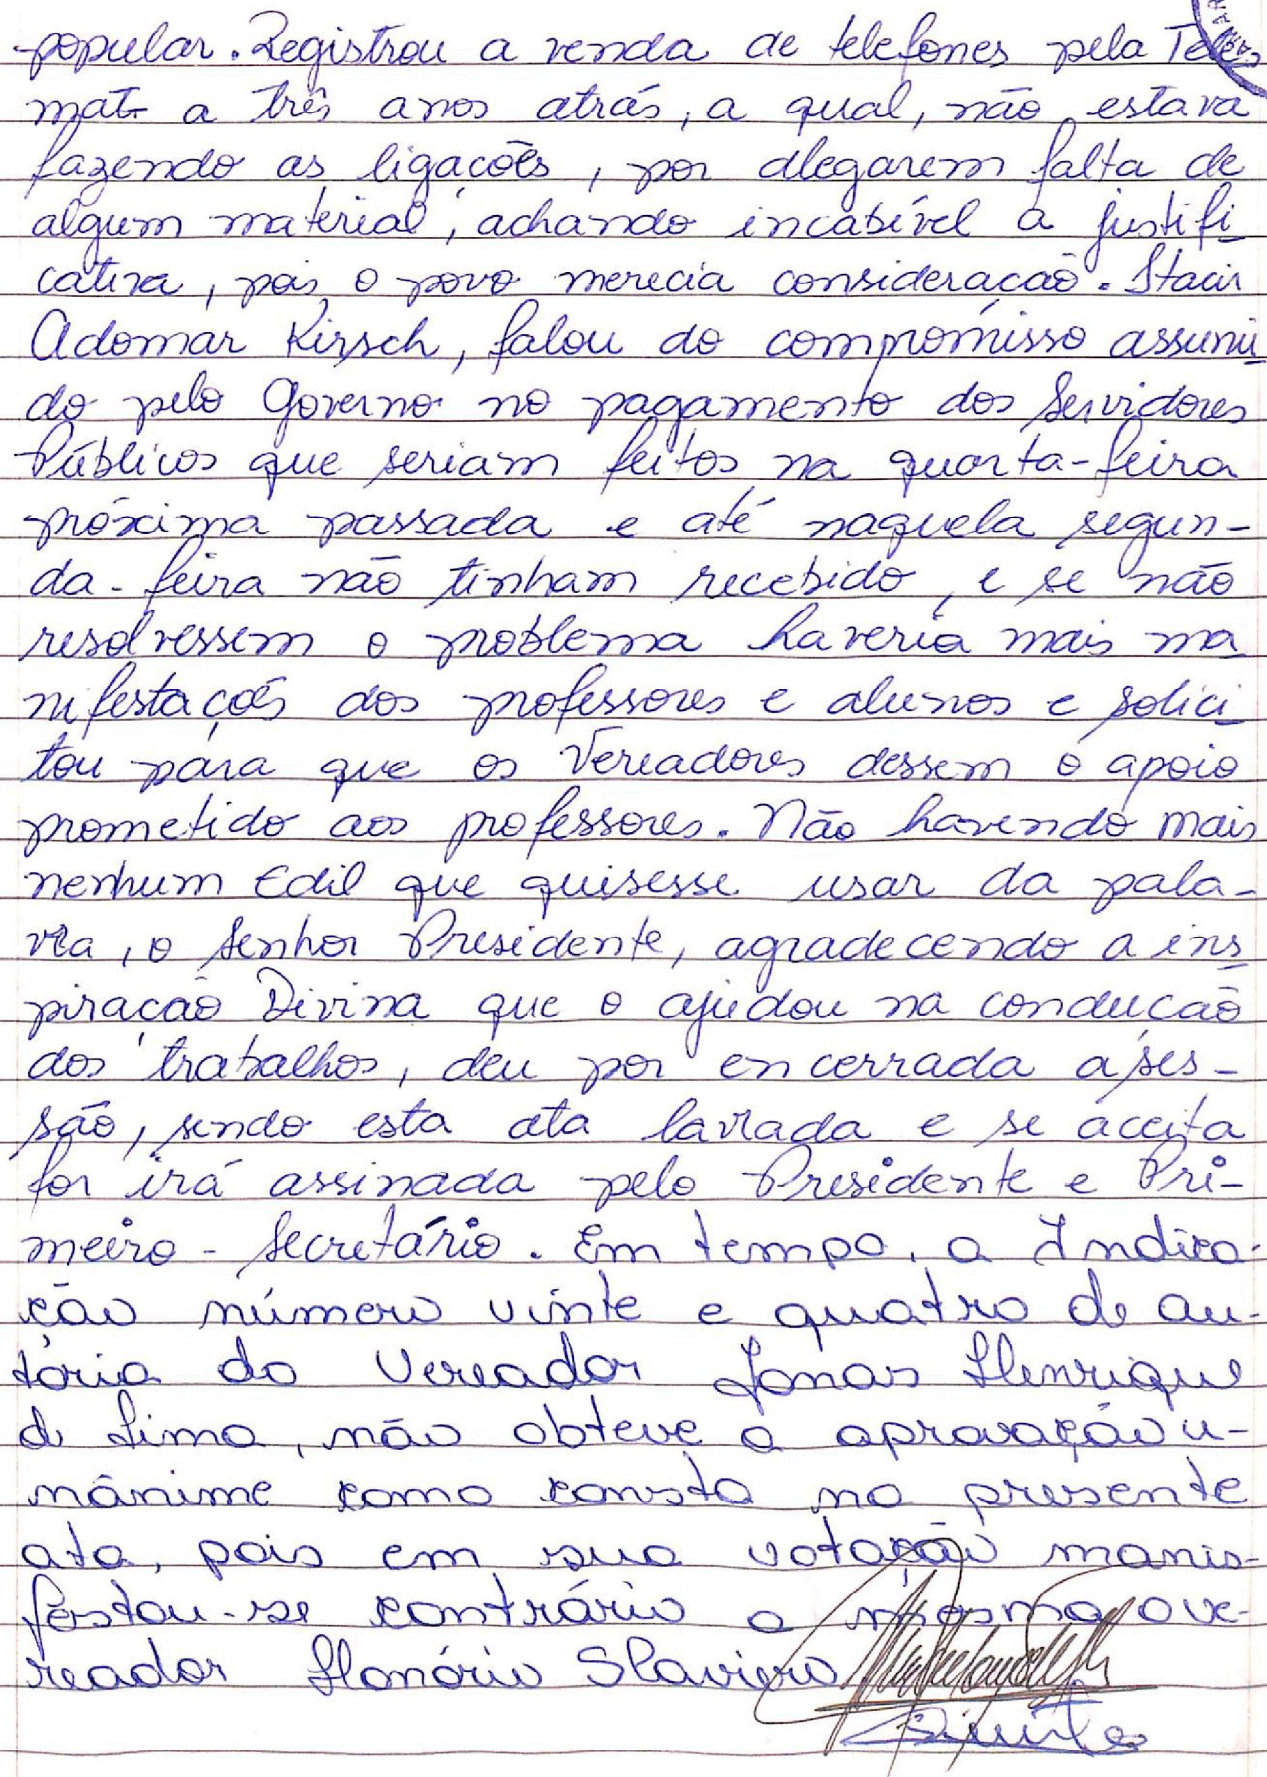 popular. Registrou a venda de telefones pela Tele
mat a três anos atrás, a qual, não estava
fazendo as ligações, por alegarem falta de
algum material, achando incabível a justifi
cativa, pois o povo merecia consideração. Itacir
Adomar Kirsch, falou do compromisso assumi
do pelo Governo no pagamento dos Servidores
Públicos que seriam feitos na quarta-feira
próxima passada e até naquela segun-
da-feira não tinham recebido, e se não
resolvessem o problema haveria mais ma
nifestações dos professores e alunos e solici
tou para que os Vereadores dessem o apoio
prometido aos professores. Não havendo mais
nenhum Edil que quisesse usar da pala-
vra, o Senhor Presidente, agradecendo a ins
piração Divina que o ajudou na condução
dos trabalhos, deu por encerrada a ses-
são, sendo esta ata lavrada e se aceita
for irá assinada pelo Presidente e Pri-
meiro-Secretário. Em tempo, a Indica-
ção número vinte e quatro de au-
toria do Vereador Jonas Henrique
de Lima, não obteve a aprovação u-
nânime como consta na presente
ata, pois em sua votação manis-
festou-se contrário a mesma o ve-
reador Honório Slaviero